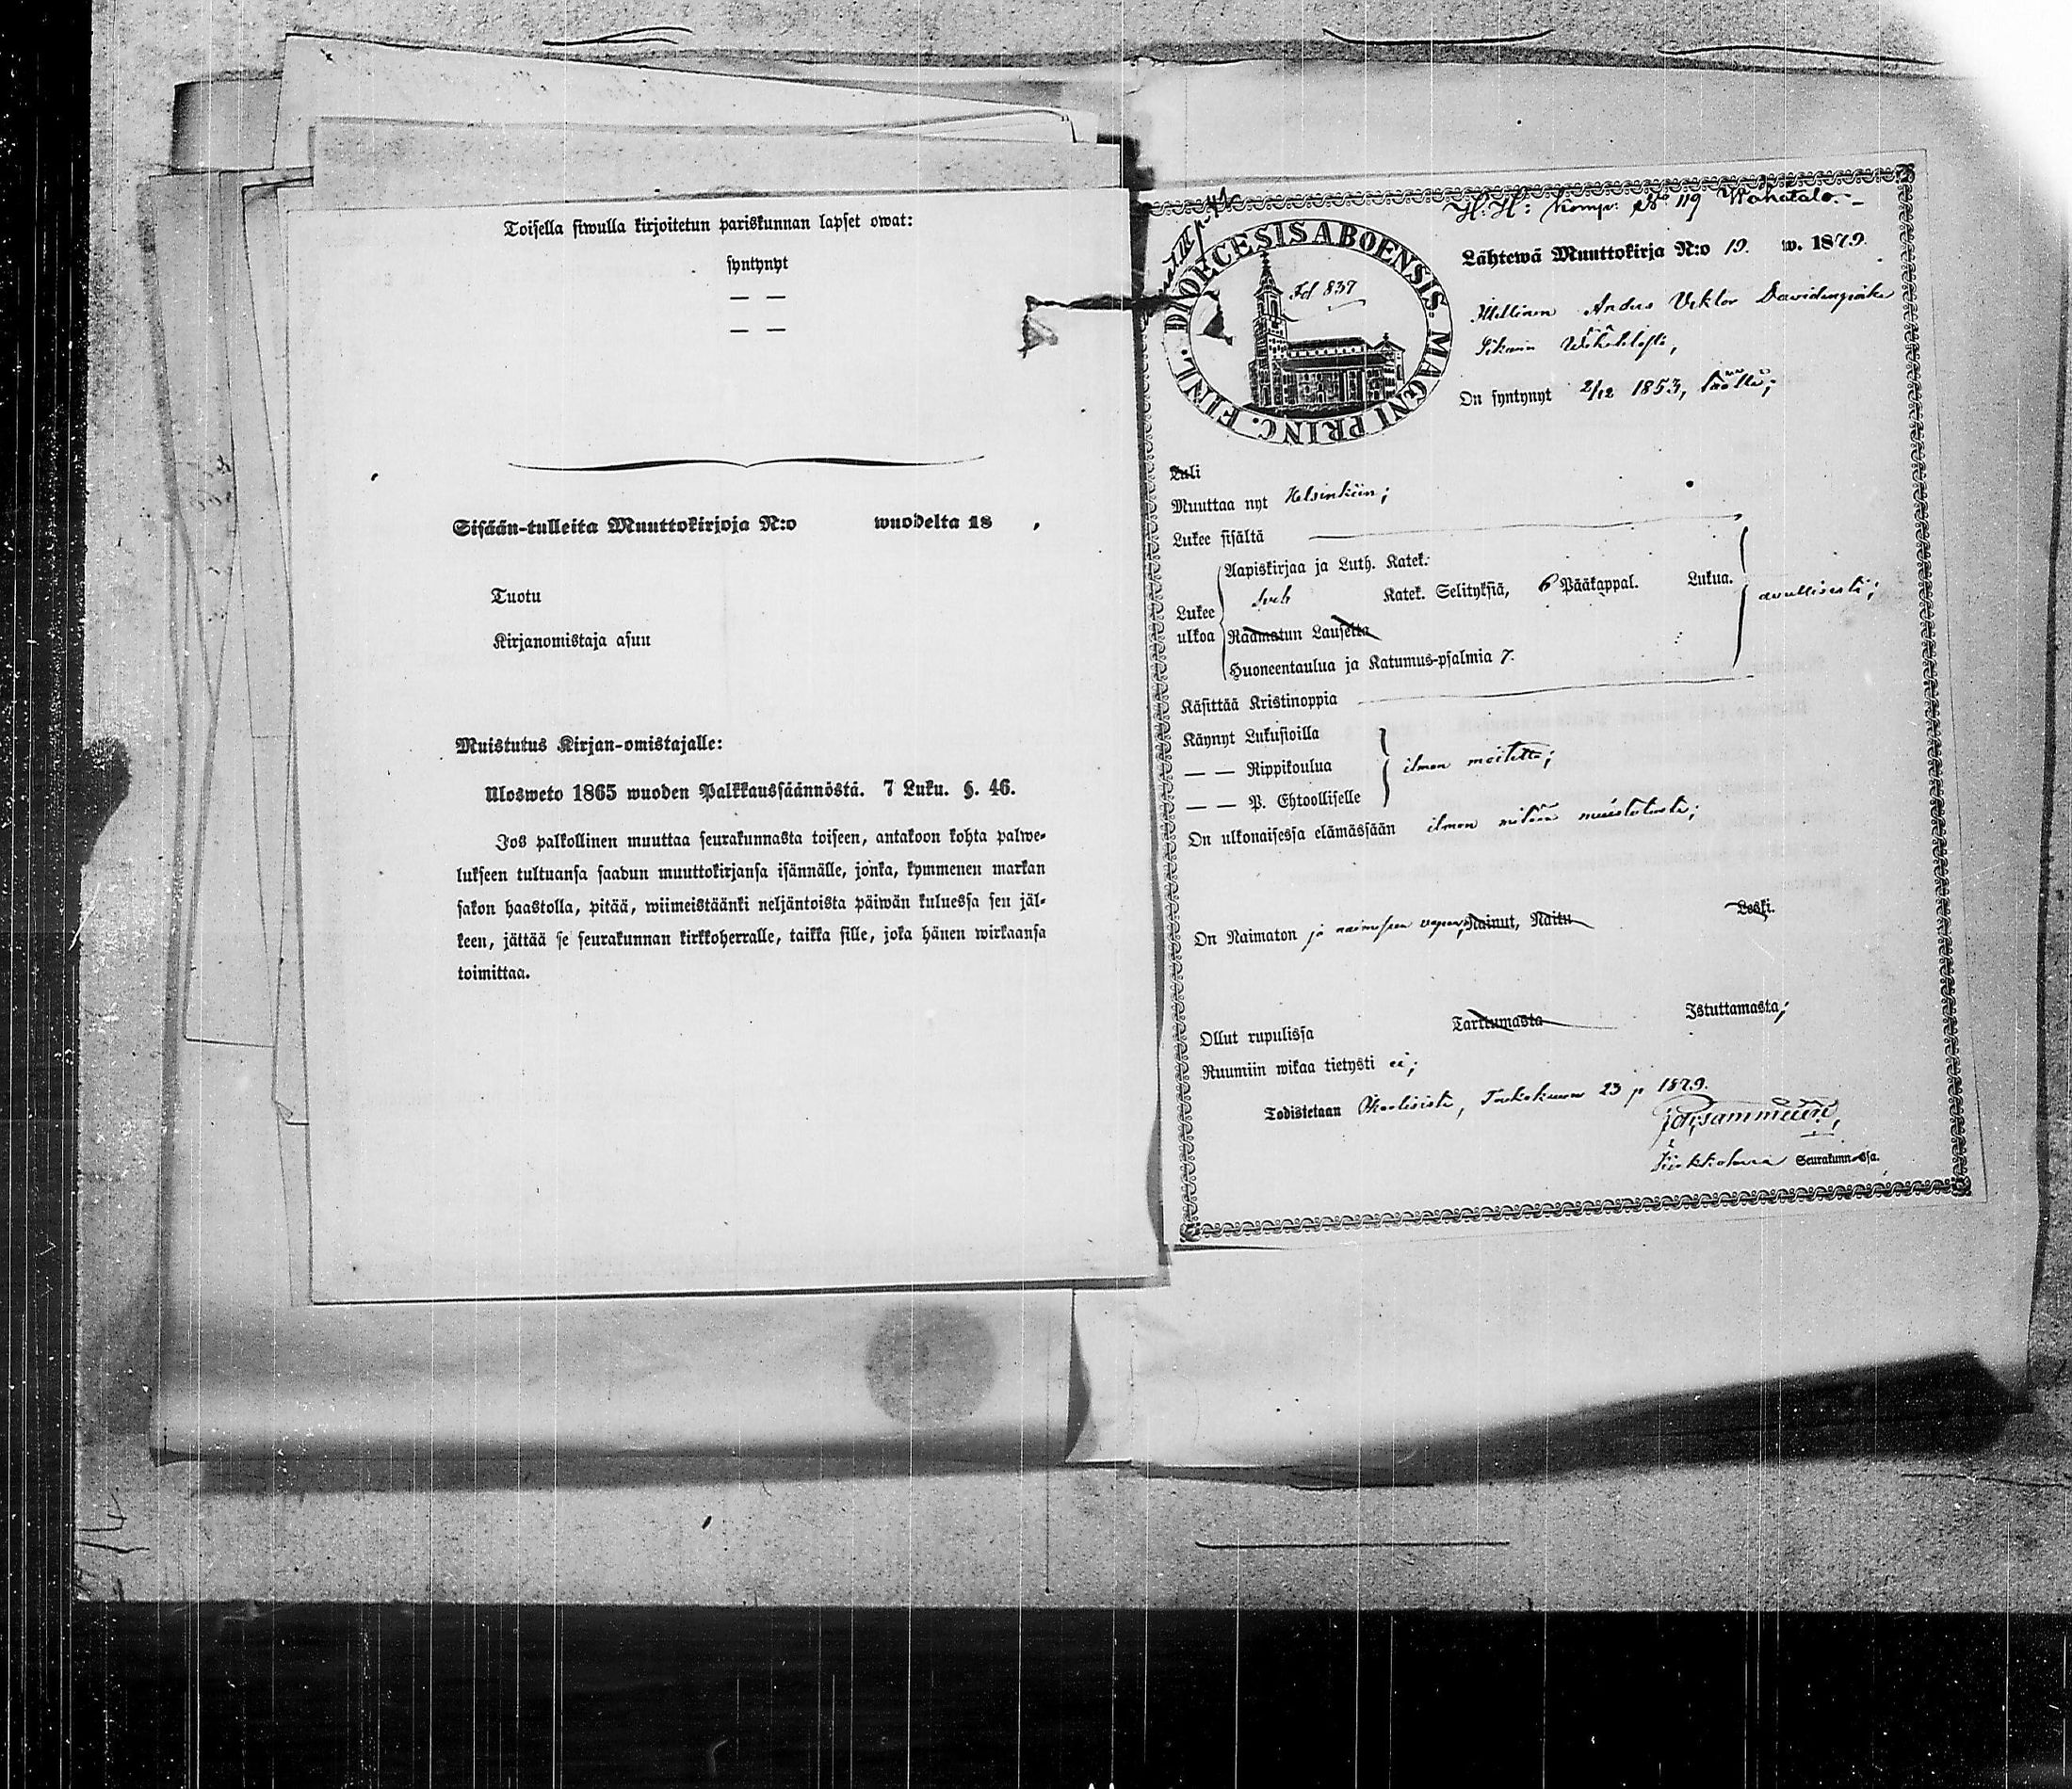 Toisella siwulla kirjoitetun pariskunnan lapset owat:
syntynyt
— —
— —
Sisään-tulleita Muuttokirjoja N:o wuodelta 18 .
Tuotu
Kirjanomistaja asuu
Muistutus Kirjan-omistajalle:
Ulosweto 1865 wuoden Palkkaussäännöstä. 7 Luku. §. 46.
Jos palkollinen muuttaa seurakunnasta toiseen, antakoon kohta palwe-
lukseen tultuansa saadun muuttokirjansa isännälle, jonka, kymmenen markan
sakon haastolla, pitää, wiimeistäänki neljäntoista päiwän kuluessa sen jäl-
keen, jättää se seurakunnan kirkkoherralle, taikka sille, joka hänen wirkaansa
toimittaa.
H. H: Komp: No 119
DIOECESIS ABOENSIS. MAGNI PRINC. FINL.
Fol 837
Lähtewä Muuttokirja N:o 19. w. 1879.
Anders Viktor
On syntynyt 2/12 1853, täällä;
Tuli
Muuttaa nyt Helsinkiin;
Lukee sisältä
Lukee ulkoa
Aapiskirjaa ja Luth. Katek:
Katek. Selityksiä, 6 Pääkappal. Lukua.
Raamatun Lauseita
Huoneentaulua ja Katumus-psalmia 7.
awullisesti;
Käsittää Kristinoppia
Käynyt Lukusioilla
— — Rippikoulua
— — P. Ehtoollisella
ilman moitetta;
On ulkonaisessa elämässään ilman mitään muistutusta;
On Naimaton ja naimiseen vapaa; Nainut, Naitu Leski.
Ollut rupulissa Tarttumasta Istuttamasta;
Ruumiin wikaa tietysti ei;
Todistetaan Toukokuun 23 p 1879.
Seurakunnassa.